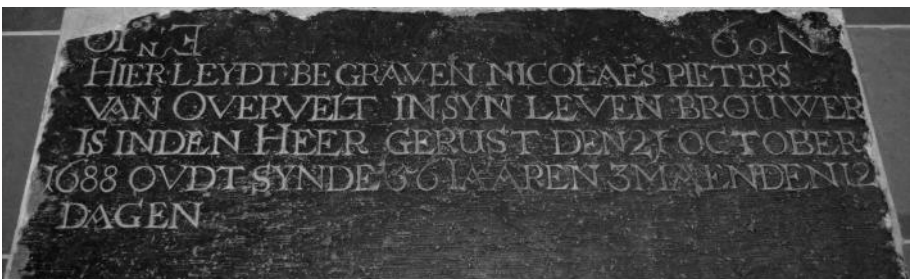 HIER LEYDT BEGRAVEN NICOLAES PIETERS
VAN OVERVELT IN SYN LEVEN BROUWER
IS INDEN HEER GERUST DEN 21 OCTOBER
1688 OVDT SYNDE 36 IAAREN 3 MAENDEN 12
DAGEN